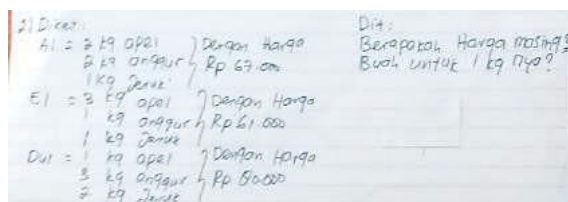 2) Diket :
Al = 2 kg apel
2 kg anggur
1 kg Jeruk
Dengan Harga
Rp 67.000
El = 3 kg apel
1 kg anggur
1 kg Jeruk
Dengan Harga
Rp 61.000
Dul = 1 kg apel
3 kg anggur
2 kg Jeruk
Dengan Harga
Rp 80.000
Dit :
Berapakah Harga masing²
Buah untuk 1 kg nya?